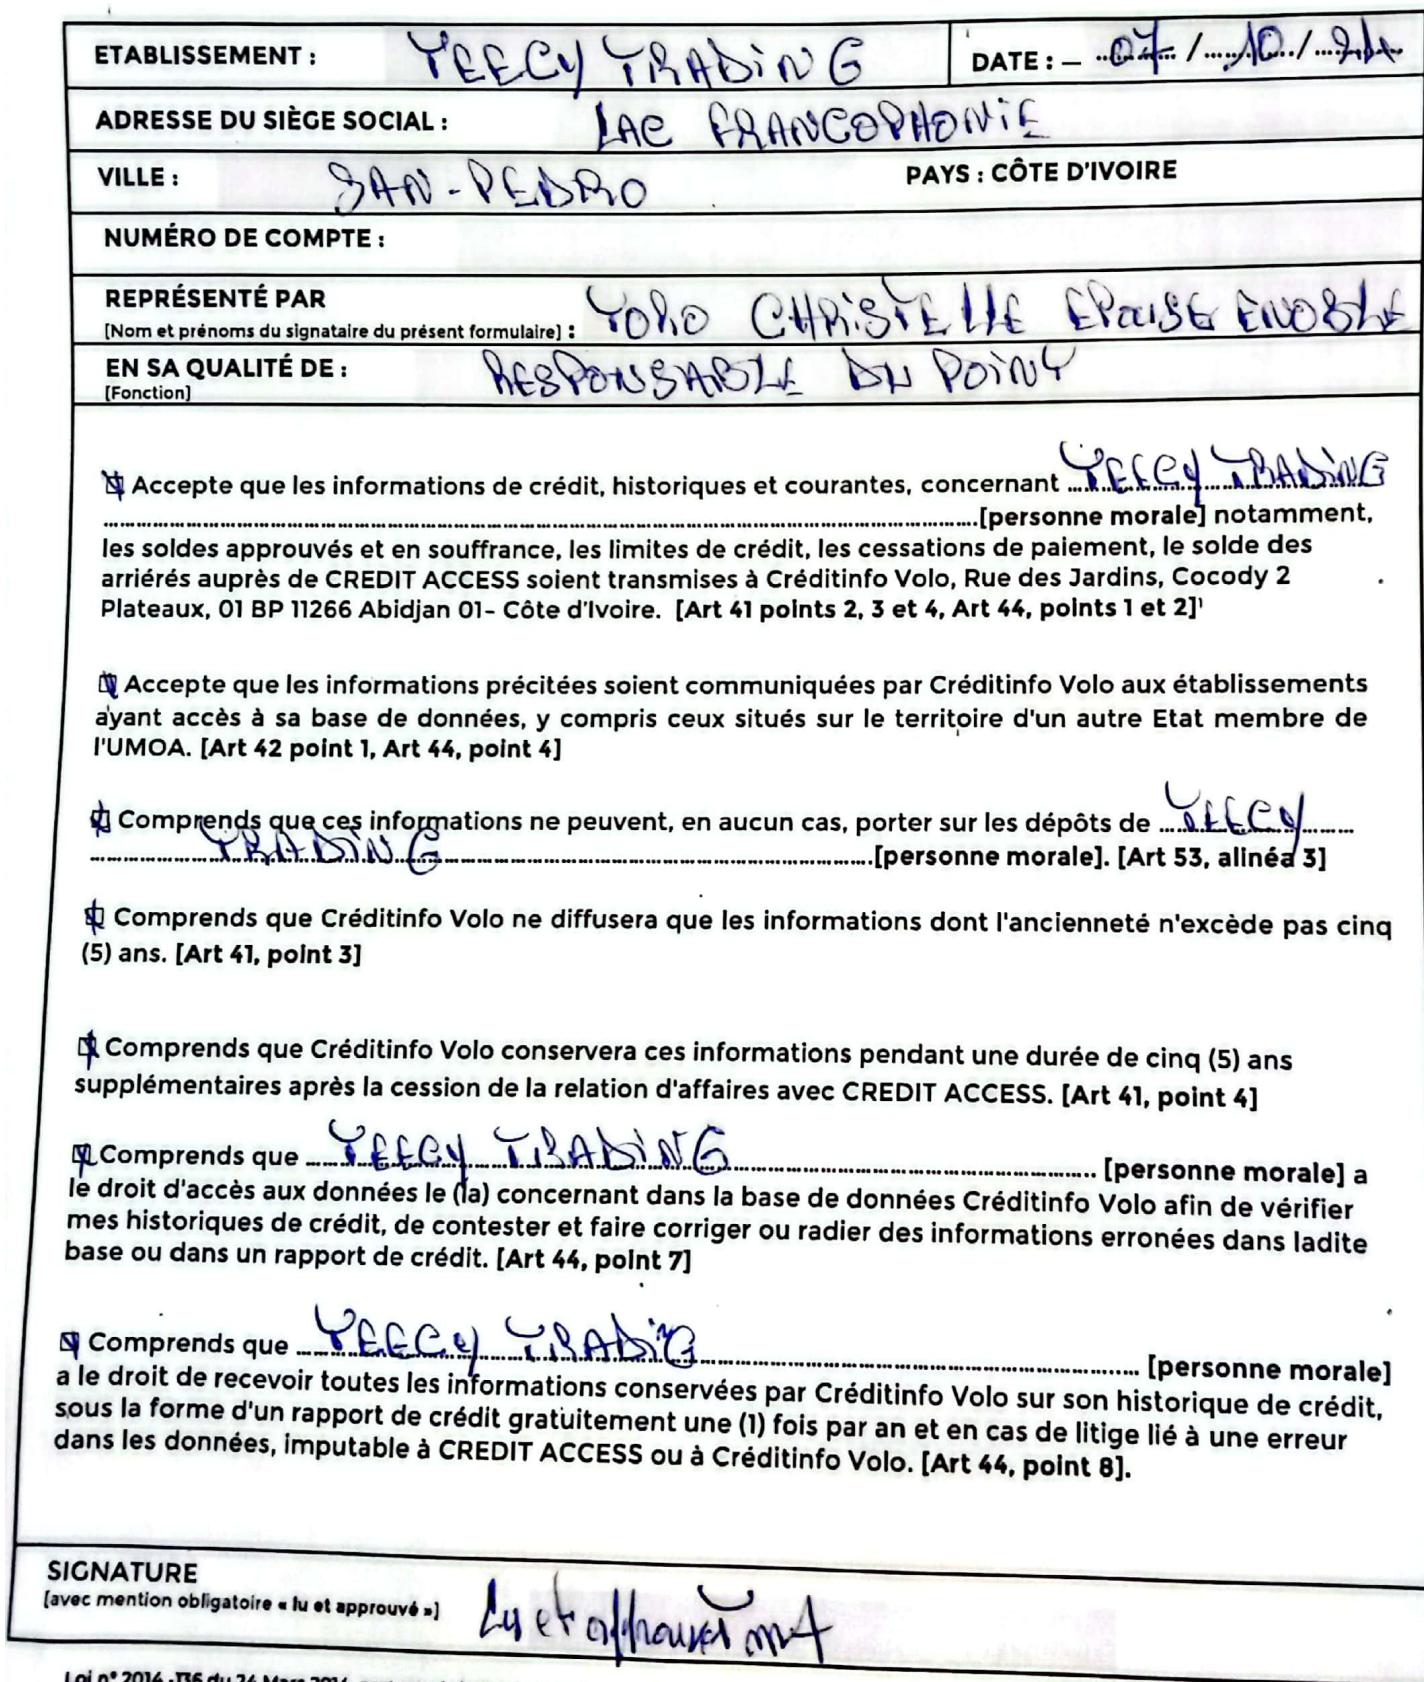 ETABLISSEMENT : YEECY TRADING DATE : – 07 / 10 / 21
ADRESSE DU SIÈGE SOCIAL : LAC FRANCOPHONIE
VILLE : SAN-PEDRO PAYS : CÔTE D'IVOIRE
NUMÉRO DE COMPTE :
REPRÉSENTÉ PAR
[Nom et prénoms du signataire du présent formulaire] : YORO CHRISTELLE EPOUSE ENOBLE
EN SA QUALITÉ DE : RESPONSABLE DU POINT
[Fonction]
Accepte que les informations de crédit, historiques et courantes, concernant YEECY TRADING
[personne morale] notamment,
les soldes approuvés et en souffrance, les limites de crédit, les cessations de paiement, le solde des
arriérés auprès de CREDIT ACCESS soient transmises à Créditinfo Volo, Rue des Jardins, Cocody 2
Plateaux, 01 BP 11266 Abidjan 01- Côte d'Ivoire. [Art 41 points 2, 3 et 4, Art 44, points 1 et 2]¹
Accepte que les informations précitées soient communiquées par Créditinfo Volo aux établissements
ayant accès à sa base de données, y compris ceux situés sur le territoire d'un autre Etat membre de
l'UMOA. [Art 42 point 1, Art 44, point 4]
Comprends que ces informations ne peuvent, en aucun cas, porter sur les dépôts de YEECY
TRADING [personne morale]. [Art 53, alinéa 3]
Comprends que Créditinfo Volo ne diffusera que les informations dont l'ancienneté n'excède pas cinq
(5) ans. [Art 41, point 3]
Comprends que Créditinfo Volo conservera ces informations pendant une durée de cinq (5) ans
supplémentaires après la cession de la relation d'affaires avec CREDIT ACCESS. [Art 41, point 4]
Comprends que YEECY TRADING [personne morale] a
le droit d'accès aux données le (la) concernant dans la base de données Créditinfo Volo afin de vérifier
mes historiques de crédit, de contester et faire corriger ou radier des informations erronées dans ladite
base ou dans un rapport de crédit. [Art 44, point 7]
Comprends que YEECY TRADING [personne morale]
a le droit de recevoir toutes les informations conservées par Créditinfo Volo sur son historique de crédit,
sous la forme d'un rapport de crédit gratuitement une (1) fois par an et en cas de litige lié à une erreur
dans les données, imputable à CREDIT ACCESS ou à Créditinfo Volo. [Art 44, point 8].
SIGNATURE
[avec mention obligatoire « lu et approuvé »] Lu et approuvé
Loi n° 2014 -136 du 24 Mars 2014